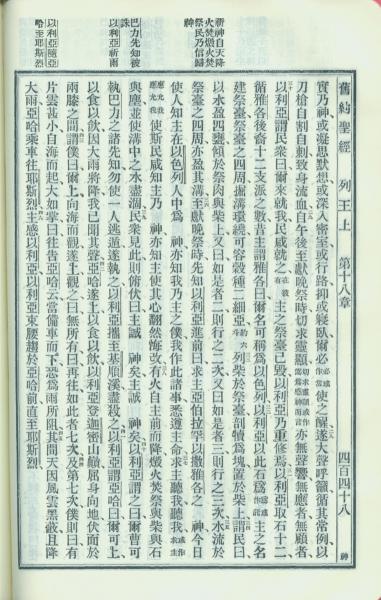 舊約聖經 列王上 第十八章 四百四十八 神
祈神自天降
火焚燬火
祭民乃信歸
神
巴力先知被
誅
以利亞祈雨
以利亞隨亞
哈至耶斯烈
實乃神或凝思默想或深入密室或行路抑或寢臥爾必使之醒遂大聲呼籲循其常例以
刀槍自割自刺致身流血自午後至獻晚祭時切求靈顯亦無聲響無應者無顧者
以利亞謂民衆曰爾來就我民咸就之在彼有主之祭臺已毀以利亞乃重修焉以利亞取石十二
循雅各後裔十二支派之數昔主諭雅各曰爾名可稱爲以色列以利亞以此石爲主之名
建祭臺祭臺之四周掘溝環繞可容穀種二細亞列柴於祭臺剖犢爲塊置於柴上謂民曰
以水盈四甕傾於祭肉與柴上又曰如是者二則行之二次又曰如是者三則行之三次水流於
祭臺之四周亦盈其溝至獻晚祭時先知以利亞進前曰求主亞伯拉罕以撒雅各之 神今日
使人知主在以色列人中爲 神亦知我乃主之僕我作此諸事悉遵主命求主聽我聽我
使斯民咸知主乃 神亦知主使其心翻然悔改有火自主前而降燬火焚祭與柴與石
與塵並使溝中之水盡涸民衆見此則俯伏曰主誠 神矣主誠 神矣以利亞謂之曰爾曹可
執巴力之諸先知勿使一人逃遁遂執之以利亞攜至基順溪盡殺之以利亞謂亞哈曰爾可上
以食以飲因大雨將降我已聞其聲亞哈遂上以食以飲以利亞登迦密山巔屈身向地伏面於
兩膝之間謂僕曰爾上向海而觀遂上觀之曰無所有曰再往如此者七次及第七次僕則曰有
片雲甚小自海而起大如掌曰往告亞哈云當備車而下恐爲雨所阻其間天因風雲黑蔽且降
大雨亞哈乘車往耶斯烈主感以利亞以利亞束腰趨於亞哈前直至耶斯烈